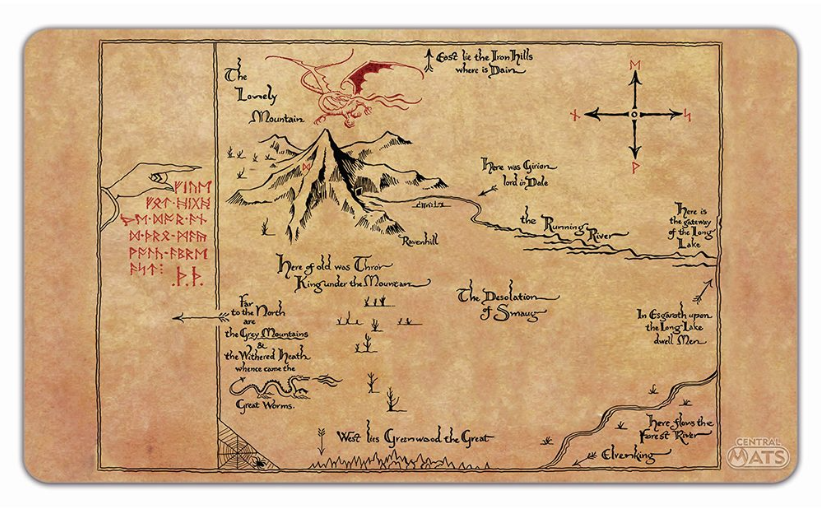 The
Lonely
Mountain
East lie the Iron Hills
where is Dain
ᛖ
ᚾ
ᛋ
ᚹ
ᛞ
Here was Girion
lord in Dale
ᚠᛁᚢᛖ
ᚠᚩᛏ·ᚻᛁᚷᚻ
ᚦᛖ·ᛞᚩᚱ·ᚪᚾ
ᛞ·ᚦᚱᛟ·ᛗᚪᚣ
ᚹᚪᛚᚳ·ᚪᛒᚱᛖ
ᚪᛋᛏ:
·ᚦ·ᚦ·
the Running
River
Here is
the gateway
of the Long
Lake
Ravenhill
Here of old was Thror
King under the Mountain
The Desolation
of Smaug
Far
to the North
are
the Grey Mountains
&
the Withered Heath
whence came the
Great Worms.
In Esgaroth upon
the Long Lake
dwell Men
Here flows the
Forest River
West lies Greenwood the Great
Elvenking
CENTRAL
MATS